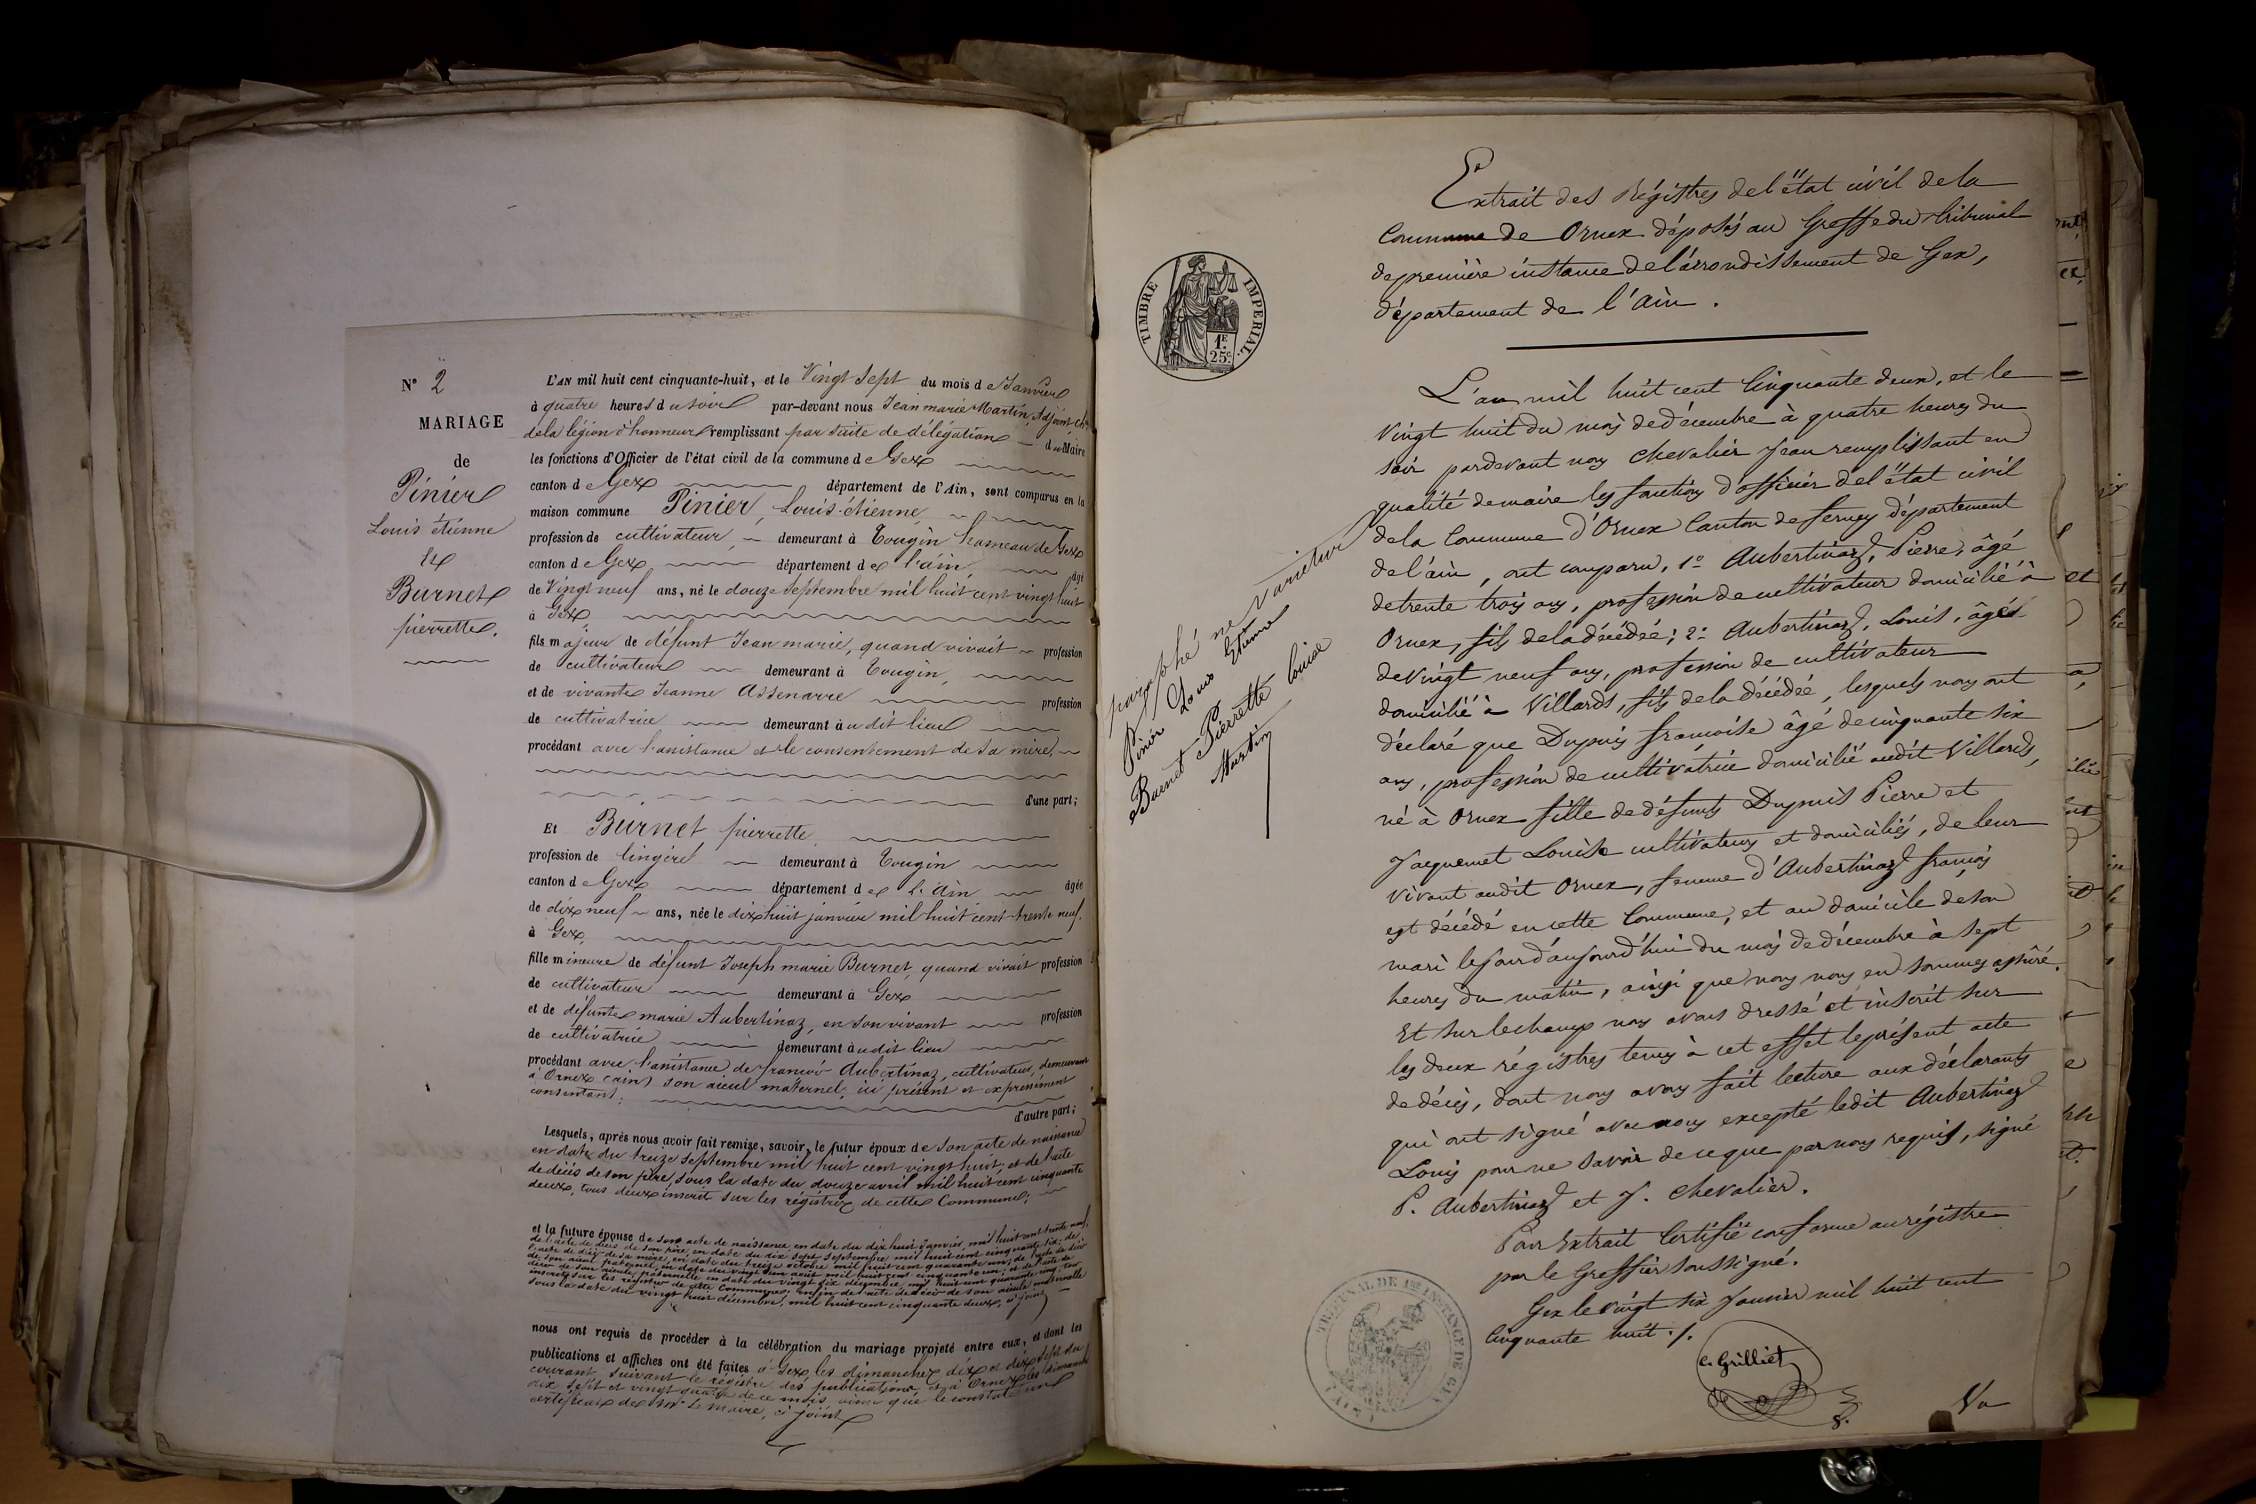 N° 2
MARIAGE
de
Pinier
Louis étienne
Et
Burnet
pierrette.
L'AN mil huit cent cinquante-huit, et le Vingt Sept du mois de Janvier
à quatre heures du soir par-devant nous Jean marie Martin, Adjoint, ch.er
de la légion d'honneur remplissant par suite de délégation du Maire
les fonctions d'Officier de l'état civil de la commune de Gex
canton de Gex département de l'Ain, sont comparus en la
maison commune Pinier, Louis-étienne
profession de cultivateur, demeurant à Tougin hameau de Gex
canton de Gex département de l'ain, âgé
de Vingt neuf ans, né le douze Septembre mil huit cent vingt huit
à Gex
fils majeur de défunt Jean marie, quand vivait profession
de cultivateur demeurant à Tougin,
et de vivante Jeanne Assenarre profession
de cultivatrice demeurant au dit lieu
procédant avec l'assistance et le consentement de sa mère,
d'une part;
Et Burnet pierrette
profession de lingère demeurant à Tougin
canton de Gex département de l'Ain âgée
de dix neuf ans, née le dix huit janvier mil huit cent trente neuf.
à Gex,
fille mineure de défunt Joseph marie Burnet quand vivait profession
de cultivateur demeurant à Gex
et de défunte marie Aubertinaz, en son vivant profession
de cultivatrice demeurant au dit lieu
procédant avec l'assistance de françois Aubertinaz, cultivateur, demeurant
à Ornex (ain) son aieul maternel, ici présent et expressément
consentant;
d'autre part;
Lesquels, après nous avoir fait remise, savoir, le futur époux de son acte de naissance
en date du treize septembre mil huit cent vingt huit, et de l'acte
de décès de son père, sous la date du douze avril mil huit cent cinquante
deux, tous deux inscrit sur les régistres de cette Commune;
et la future épouse de son acte de naissance en date du dix huit Janvier mil huit cent trente neuf,
de l'acte de décès de son père, en date du dix sept Septembre mil huit cent cinquante six; de
l'acte de décès de sa mère, en date du treize octobre mil huit cent quarante un; de l'acte de décès
de son aieul paternel, en date du vingt un août mil huit cent cinquante un; et de l'acte de
décès de son aieule paternelle en date du vingt six décembre mil huit cent quarante cinq, tous
inscrits sur les régistres de cette Commune; enfin de l'acte de décès de son aieule maternelle
sous la date du vingt huit décembre, mil huit cent cinquante deux, ci joint
nous ont requis de procéder à la célébration du mariage projeté entre eux, et dont les
publications et affiches ont été faites à Gex, les dimanches dix et dix sept du
courant suivant le régistre des publications et à Ornex les dimanches
dix sept et vingt quatre de ce mois, ainsi que le constate un
certificat de Mr le maire, ci joint
TIMBRE IMPERIAL.
1F 25c
paraphé ne varietur
Pinier Louis Etienne
Burnet Pierrette louise
Martin
Extrait des Régistres de l'état civil de la
Commune de Ornex déposés au Greffe du tribunal
de première instance de l'arrondissement de Gex,
département de l'ain.
L'an mil huit cent Cinquante deux, et le
vingt huit du mois de décembre à quatre heures du
soir pardevant nous Chevalier Jean remplissant en
qualité de maire les fonctions d'officier de l'état civil
de la Commune d'Ornex Canton de ferney département
de l'ain, ont comparu, 1° Aubertinaz, Pierre, âgé
de trente trois ans, profession de cultivateur domicilié à
Ornex, fils de la décédée; 2° Aubertinaz, Louis, âgé
de vingt neuf ans, profession de cultivateur
domicilié à Villards, fils de la décédée, lesquels nous ont
déclaré que Dupuis françoise âgé de cinquante six
ans, profession de cultivatrice domicilié audit Villards,
né à Ornex fille de défunts Dupuis Pierre et
Jacquemet Louise cultivateurs et domiciliés, de leur
vivant audit Ornex, femme d'Aubertinaz françois
est décédé en cette Commune, et au domicile de son
mari le jour d'aujourd'hui du mois de décembre à sept
heures du matin, ainsi que nous nous en sommes assuré.
Et sur le champ nous avons dressé et inscrit sur
les deux régistres tenus à cet effet le présent acte
de décès, dont nous avons fait lecture aux déclarants
qui ont signé avec nous excepté ledit Aubertinaz
Louis pour ne savoir de ce que par nous requis, signé
P. Aubertinaz et J. Chevalier.
Pour Extrait Certifié conforme au régistre
par le Greffier soussigné.
Gex le vingt six Janvier mil huit cent
Cinquante huit ./.
C. Grilliet
TRIBUNAL DE 1RE INSTANCE DE GEX
Vu